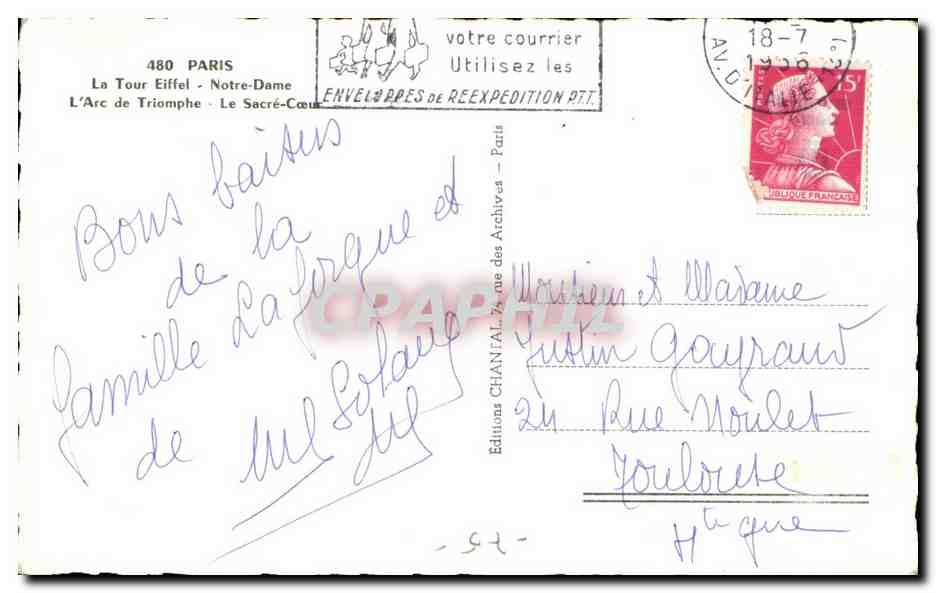 480 PARIS
La Tour Eiffel - Notre-Dame
L'Arc de Triomphe - Le Sacré-Cœur
votre courrier
Utilisez les
ENVELOPPES DE REEXPEDITION P.T.T.
18-7
1956
AV. D'ITALIE
POSTES
15F
UBLIQUE FRANCAISE
Bons baisers
de la
famille Laforgue et
de
Editions CHANTAL, 74, rue des Archives - Paris
CPAPHIL
Monsieur et Madame
Justin Gayraud
24 Rue Noulet
Toulouse
Hte gne
- 57 -